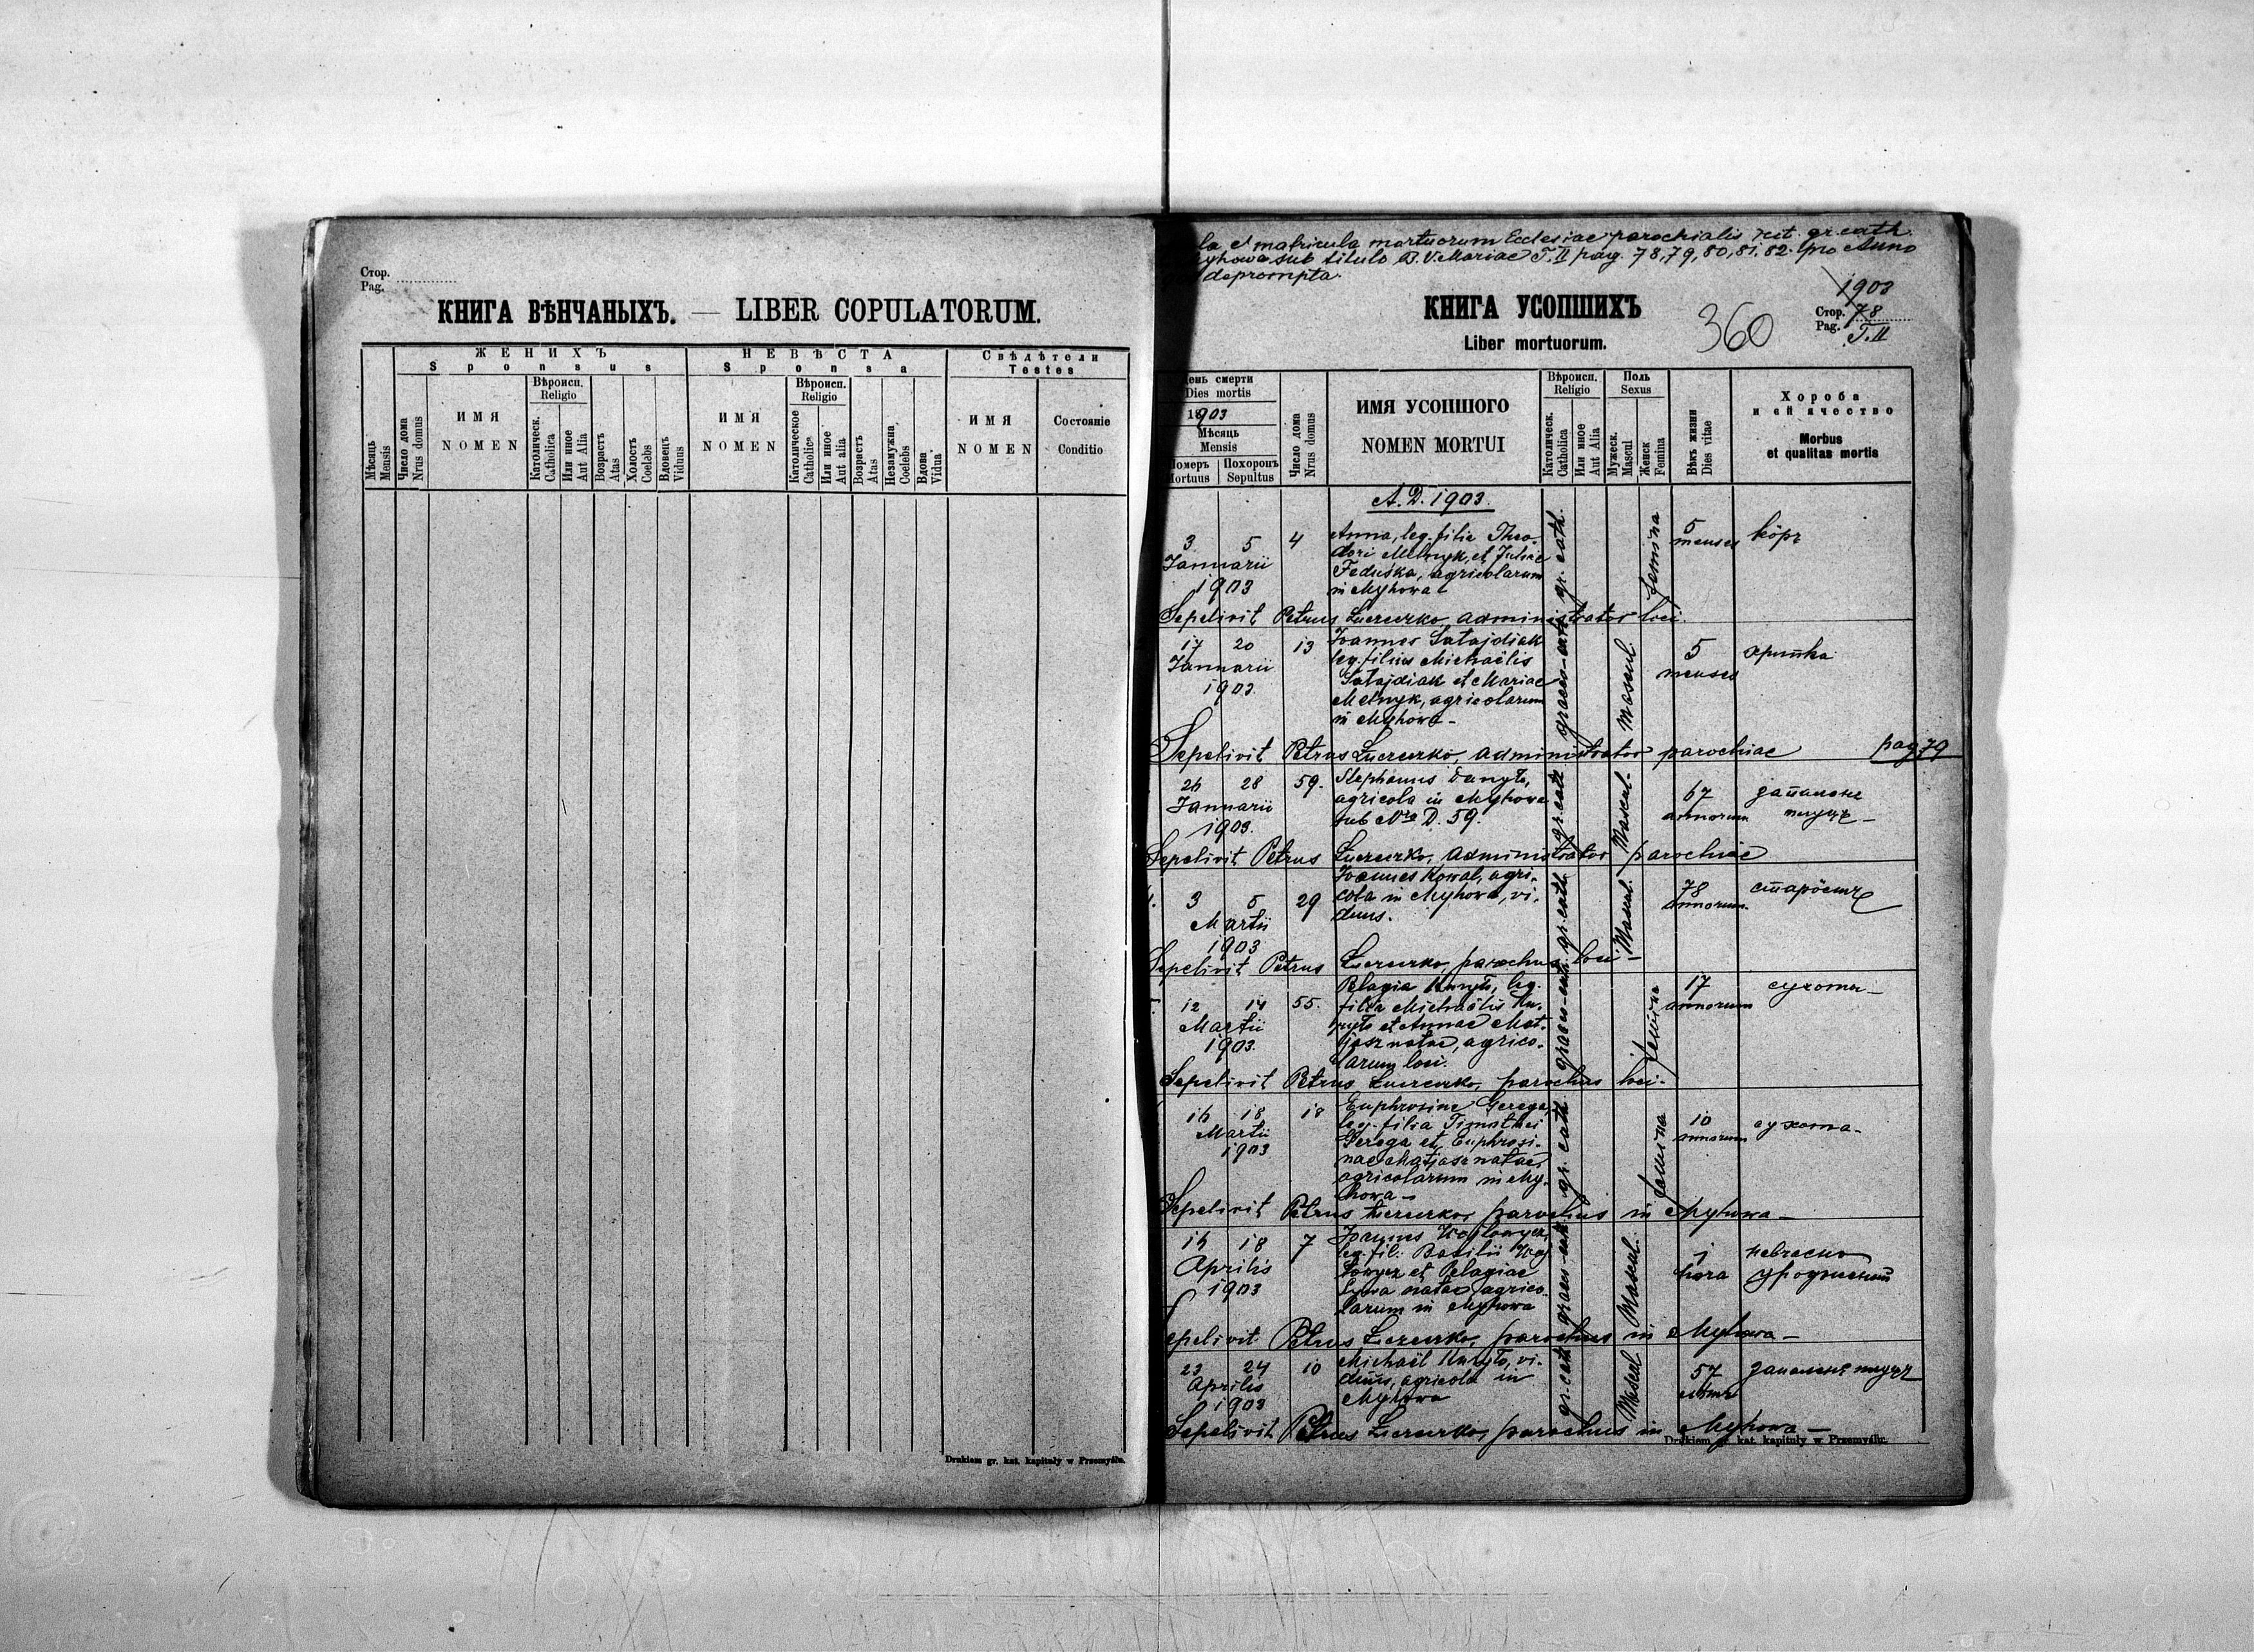 Стор.
Pag.
КНИГА ВѢНЧАНЫХЪ. — LIBER COPULATORUM.
ЖЕНИХЪ
Sponsus
НЕВѢСТА
Sponsa
Свѣдѣтели
Testes
Мѣсяць
Mensis
Число дома
Nrus domus
ИМЯ
NOMEN
Вѣроисп.
Religio
Католическ.
Catholica
Или иное
Aut Alia
Возрастъ
Atas
Холостъ
Coelebs
Вдовецъ
Viduus
ИМЯ
NOMEN
Вѣроисп.
Religio
Католическое
Catholica
Или иное
Aut alia
Возрастъ
Atas
Незамужна
Coelebs
Вдова
Vidua
ИМЯ
NOMEN
Состояніе
Conditio
Drukiem gr. kat. kapituły w Przemyślu.
la et matricula mortuorum Ecclesiae parochialis rit. gr. cath.
yhowa sub titulo B. V. Mariae T. II pag. 78, 79, 80, 81, 82. pro Anno
deprompta.
1903
КНИГА УСОПШИХЪ
Liber mortuorum.
360
Стор. 78
Pag. T. II
ень смерти
Dies mortis
1903
Мѣсяць
Mensis
Померъ
Mortuus
Похоронъ
Sepultus
Число дома
Nrus domus
ИМЯ УСОПШОГО
NOMEN MORTUI
Вѣроисп.
Religio
Католическ.
Catholica
Или иное
Aut Alia
Полъ
Sexus
Мужеск.
Mascul
Женск
Femina
Вѣкъ жизни
Dies vitae
Хороба
и ей ячество
Morbus
et qualitas mortis
A. D. 1903.
3 5 4 Anna, leg. filia Theo-
dori Melnyk, et Juliae
Januarii Feduśka, agricolarum
1903 in Myhowa
gr. cath. Femina 5 menses köpr
Sepelivit Petrus administrator loci.
17 20 13 Joannes Satajdiak
leg. filius Michaëlis
Januarii Satajdiak et Mariae
1903. Melnyk, agricolarum
in Myhowa -
graeco-cath. Mascul. 5 menses
Sepelivit Petrus administrator parochiae pag 79
26 28 59. Stephanus Danyło,
Januarii agricola in Myhowa
1903. sub Nro D. 59.
gr. cath Mascul. 67 annorum запаленє
Sepelivit Petrus administrator parochiae
3 5 29 Joannes Kowal, agri-
cola in Myhowa, vi-
Martii duus.
1903
gr. cath. Mascul. 78 annorum. старöсть
Sepelivit Petrus parochus loci -
12 14 55. Pelagia Kuryło, leg.
filia Michaëlis Ku-
Martii ryło et Annae Mat-
1903. jasz natae, agrico-
larum loci.
graeco-cath. femina 17 annorum сухоты -
Sepelivit Petrus parochus loci.
16 18 18 Euphrosine Gerega,
leg. filia Timothei
Martii Gerega et Euphrosi-
1903 nae Matjasz natae,
agricolarum in My-
howa -
gr. cath. femina 10 annorum сухота -
Sepelivit Petrus parochus in Myhowa -
16 18 7 Joannes
leg. fil. Basilii
Aprilis et Pelagiae
1903 natae agrico-
larum in Myhowa
graeco-cath Mascul. 1 hora невчасно
Sepelivit Petrus parochus in Myhowa -
23 24 10 Michaël Kuryło, vi-
Aprilis duus, agricola in
1903 Myhowa
gr. cath Mascul. 57 запаленя
Sepelivit Petrus parochus in Myhowa -
Drukiem gr. kat. kapituły w Przemyślu.